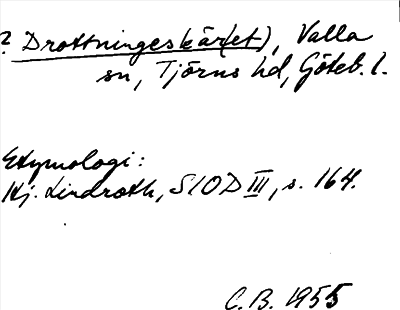 ? Drottningeskär(et), Valla
sn, Tjörns hd, Göteb. l.
Etymologi:
Hj. Lindroth, SIOD III, s. 164.
C.B. 1955